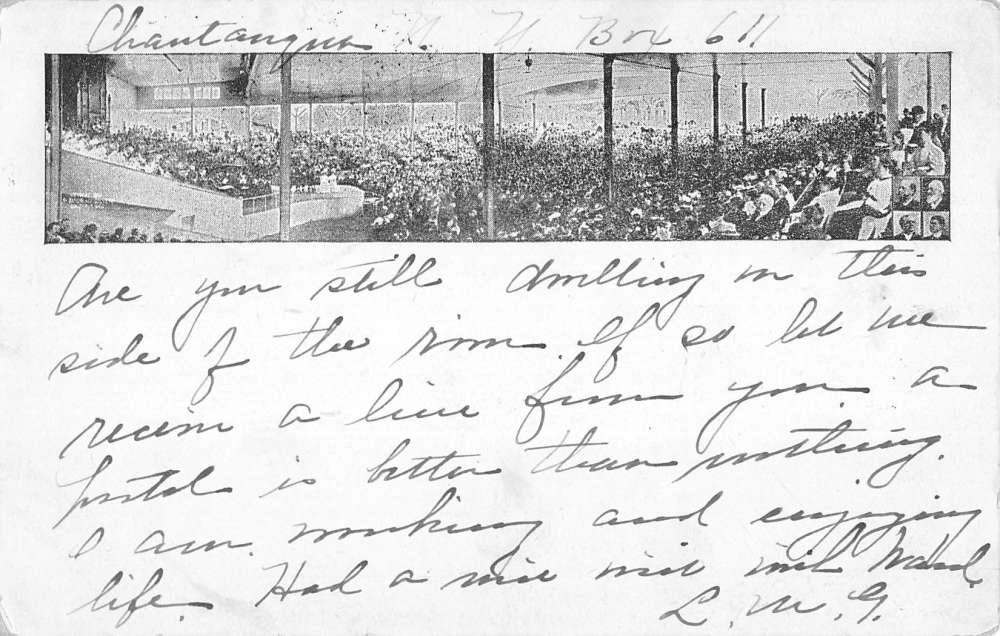 Chautauqua N. Y. Box 611
Are you still dwelling on this
side of the river. If so let me
receive a line from you a
postal is better than nothing.
I am working and enjoying
life. Had a nice visit with Ward.
L. M. G.